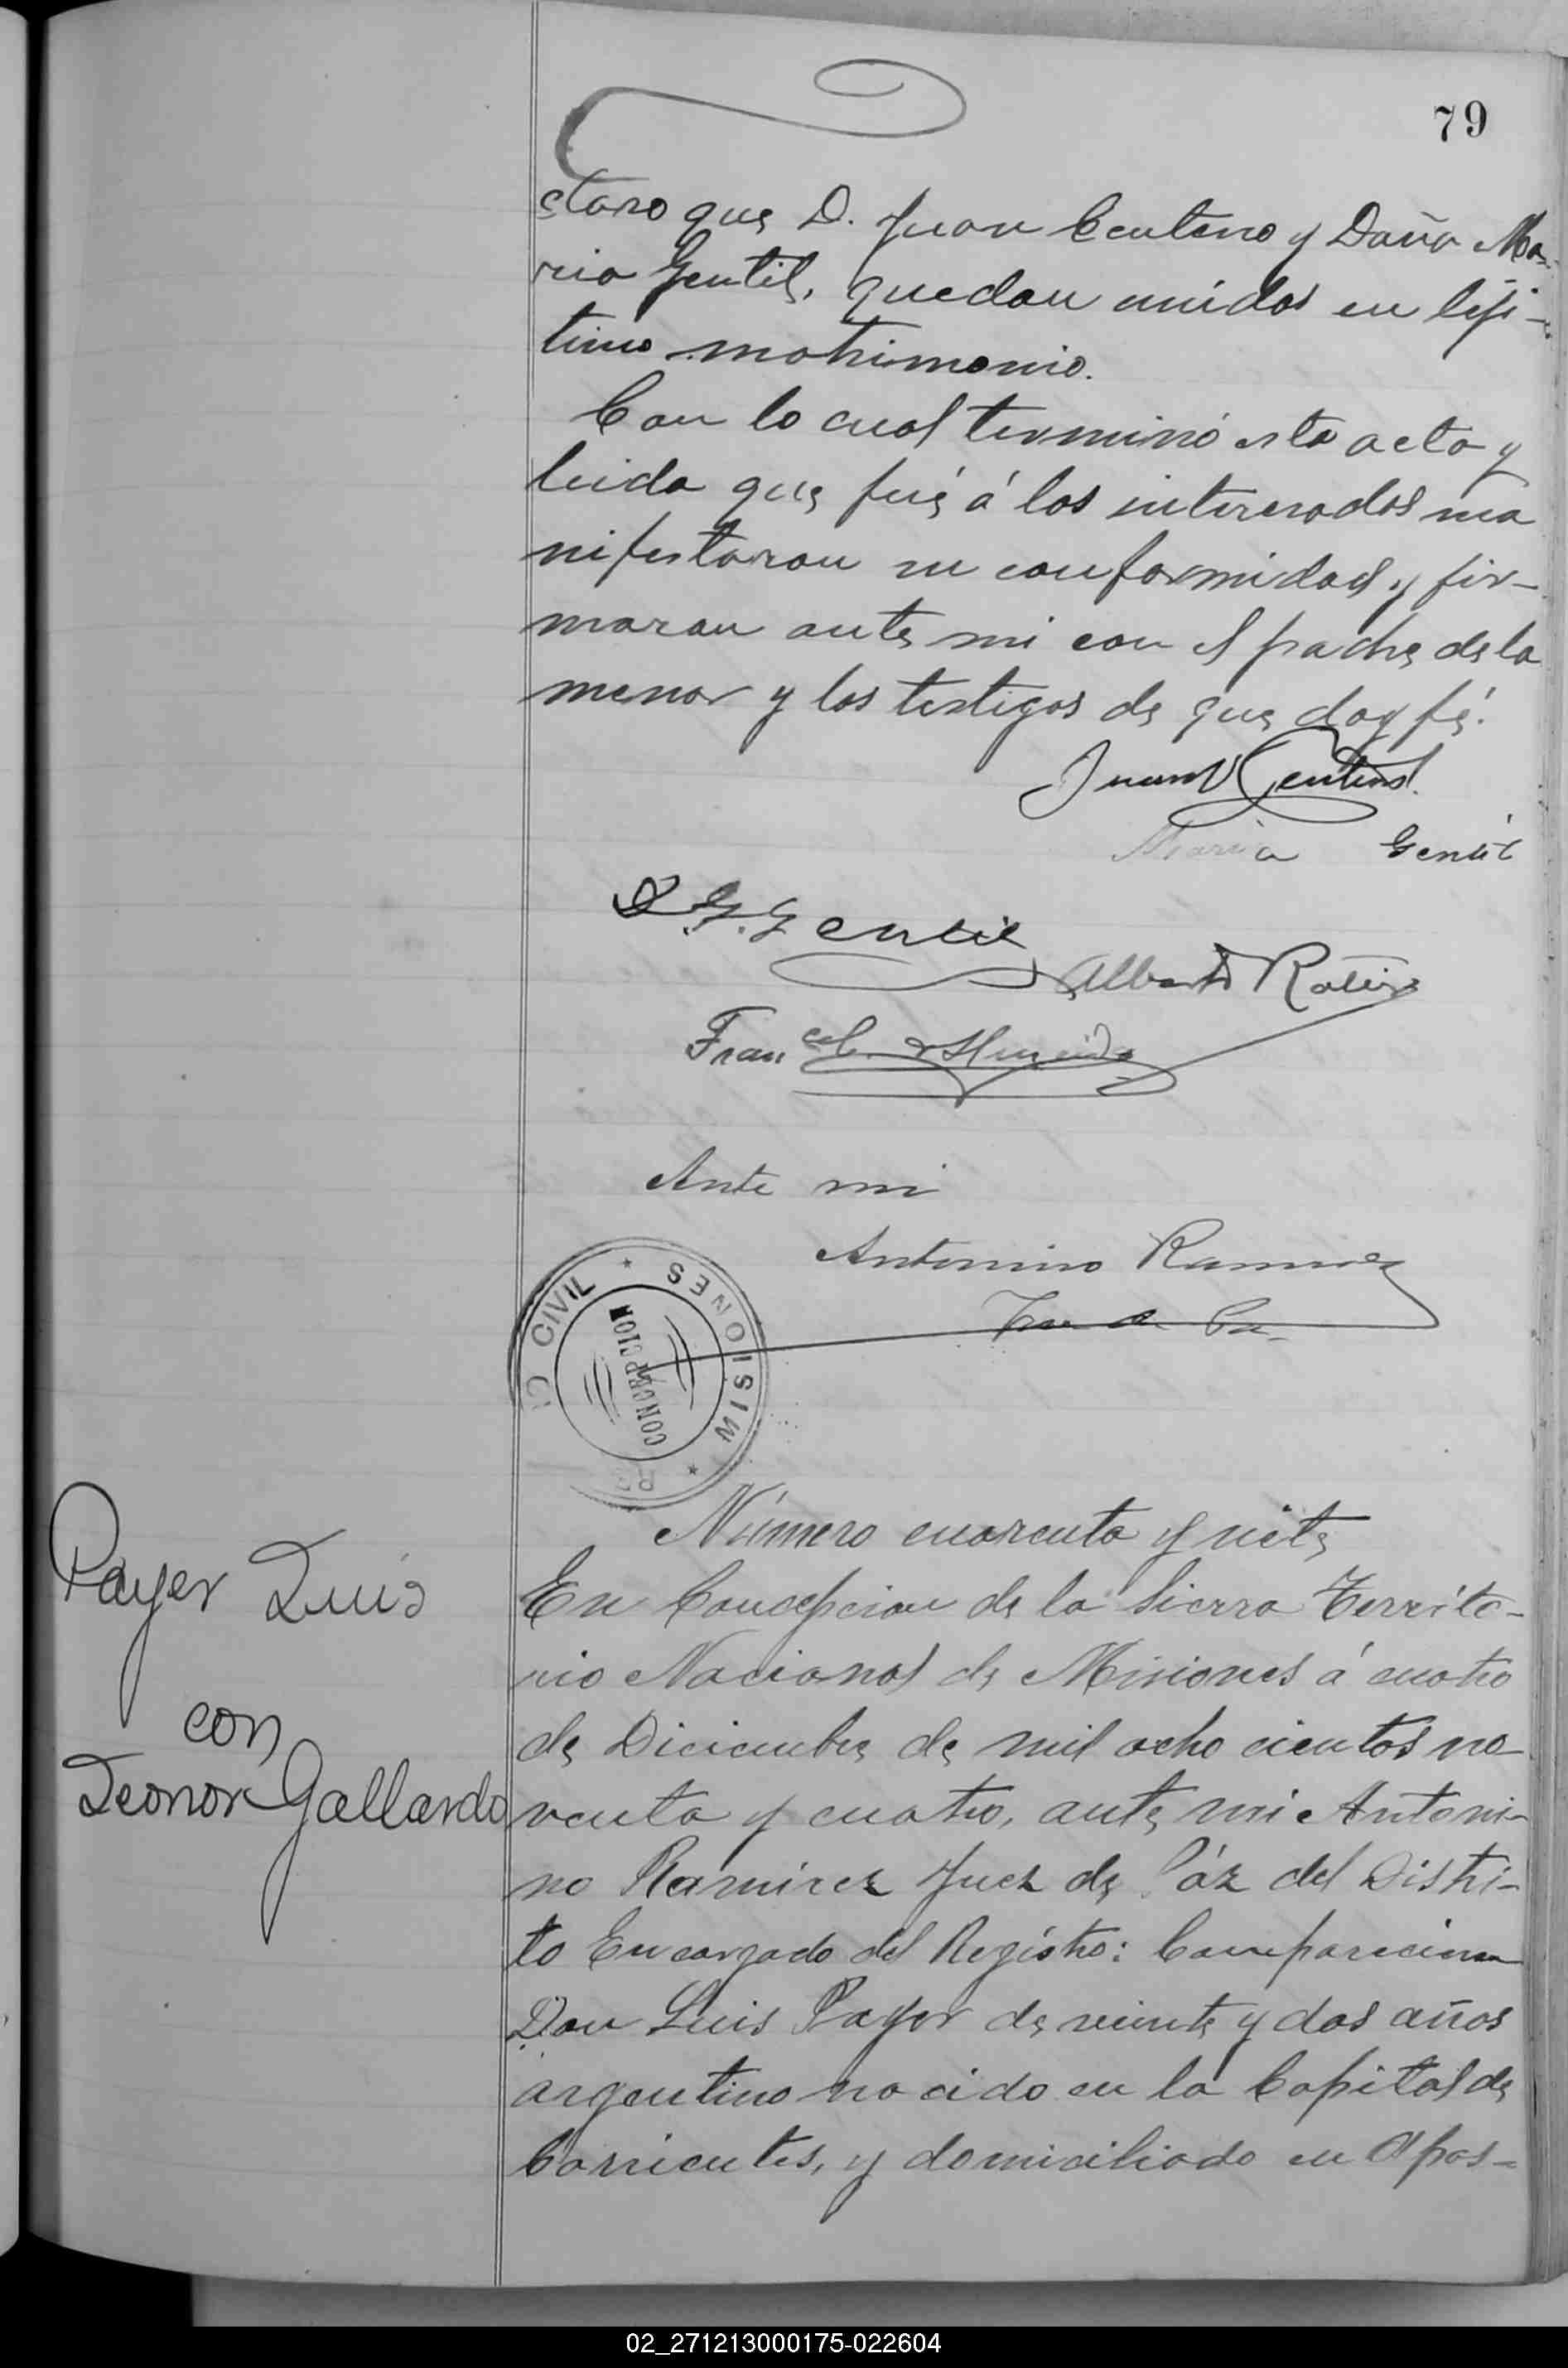 79
claro que D. Juan Centeno y Doña Ma-
ria Gentil, quedan unidos en leji-
timo matrimonio.
Con lo cual terminó esta acta y
leida que fué á los interesados ma
nifestaron su conformidad y fir-
maron ante mi con el padre de la
menor y los testigos de que doy fé.
Juan Centeno
Maria Gentil
G. Gentil
Alberto
Fran
Ante mi
Antonino Ramirez
Juez de Paz
CIVIL * MISIONES *
CONCEPCION
Payer Luis
con
Leonor Gallardo
Número cuarenta y siete
En Concepcion de la Sierra Territo-
rio Nacional de Misiones á cuatro
de Diciembre de mil ocho cientos no-
venta y cuatro, ante mi Antoni-
no Ramirez Juez de Páz del Distri-
to Encargado del Registro: Comparecieron
Don Luis Payer de veinte y dos años
argentino nacido en la Capital de
Corrientes, y domiciliado en Apos-
02_271213000175-022604